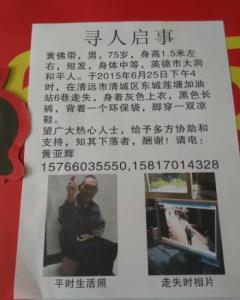 寻人启事
黄佛带，男，75岁，身高1.5米左
右，短发，身体中等，英德市大洞
和平人。于2015年6月25日下午4
时，在清远市清城区东城莲塘加油
站6巷走失，身着灰色上衣，黑色长
裤，背着一个环保袋，脚穿一双凉
鞋。
望广大热心人士，给予多方协助和
支持，知其下落者，酬谢！请电：
黄亚辉
15766035550,15817014328
平时生活照
走失时相片